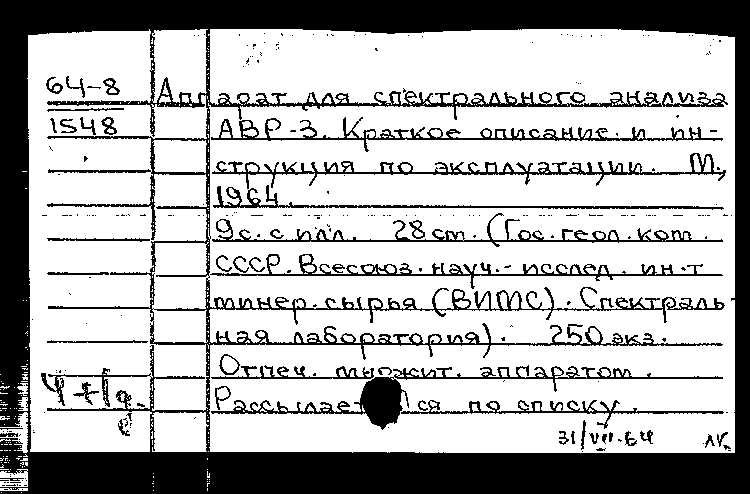 64-8 Аппарат для спектрального анализа
1548 АВР-3. Краткое описание и ин-
струкция по эксплуатации. М.,
1964.
9с. с илл. 28 cm. (Гос. геол. ком.
СССР. Всесоюз. науч.- исслед. ин-т
минер. сырья (ВИМС). Спектраль-
ная лаборатория). 250 экз.
Отпеч. множит. аппаратом.
Рассылается по списку.
31/VII-64